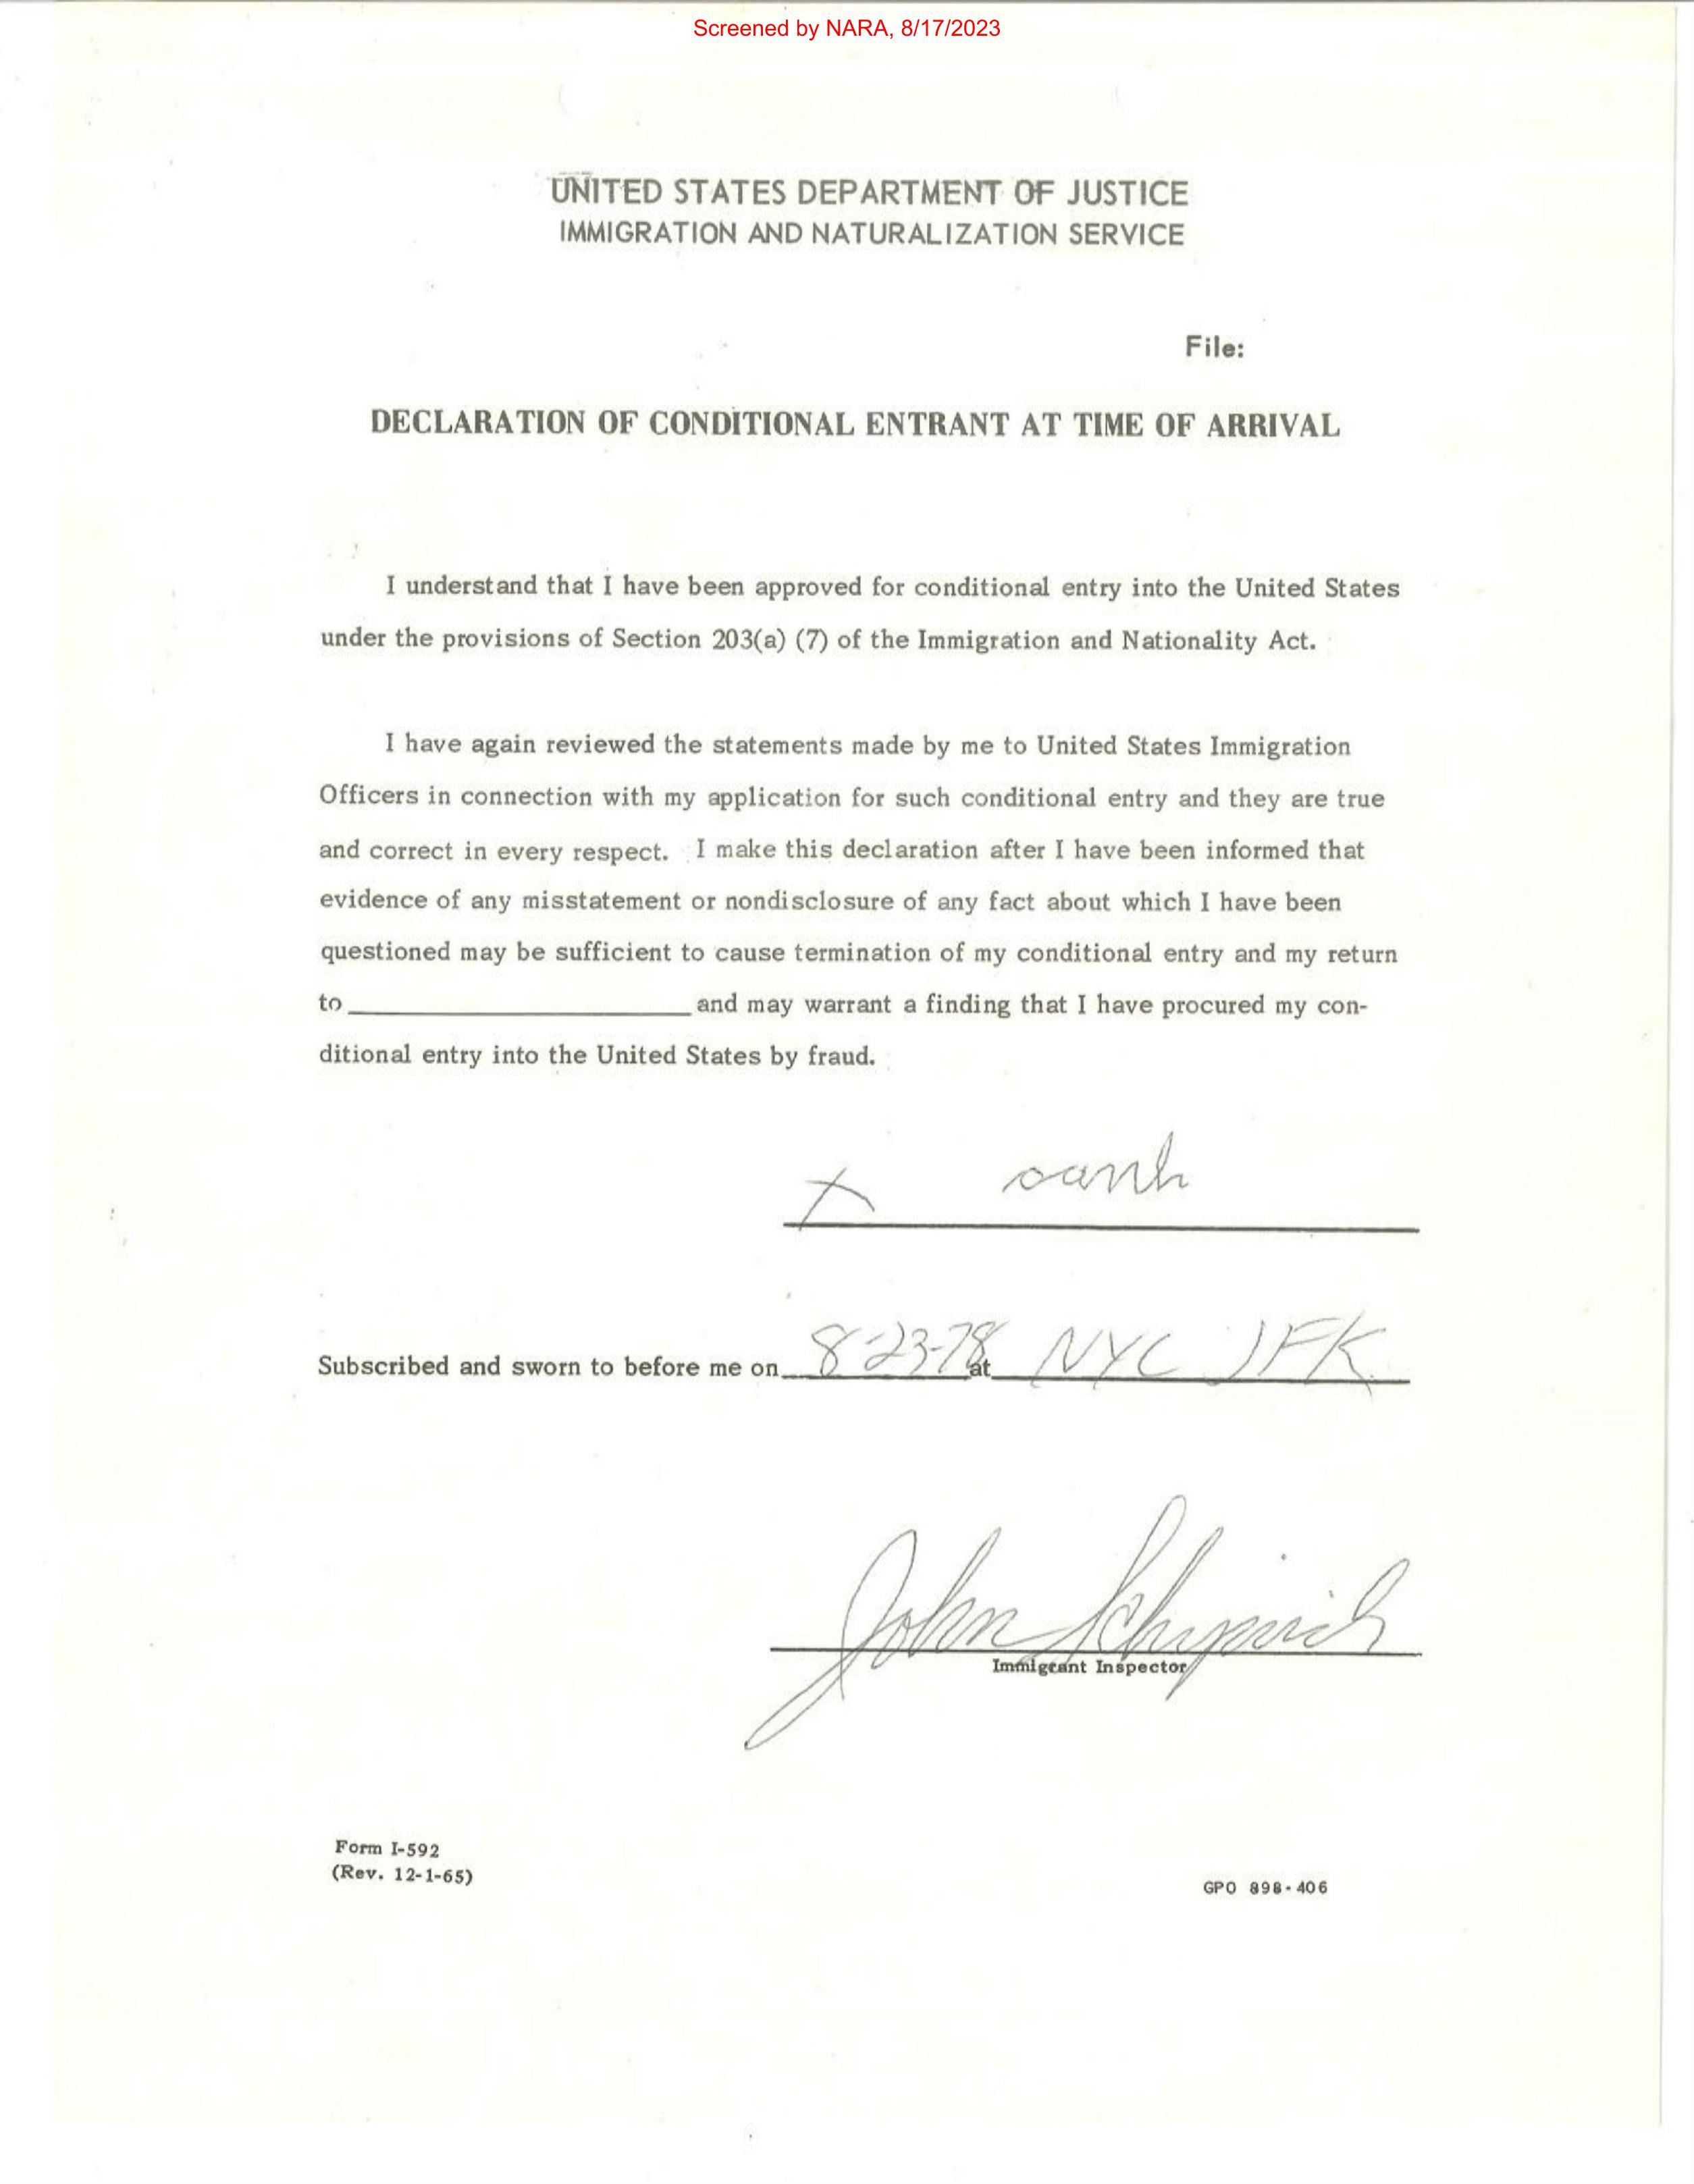 Screened by NARA, 8/17/2023
UNITED STATES DEPARTMENT OF JUSTICE
IMMIGRATION AND NATURALIZATION SERVICE
File:
DECLARATION OF CONDITIONAL ENTRANT AT TIME OF ARRIVAL
I understand that I have been approved for conditional entry into the United States
under the provisions of Section 203(a) (7) of the Immigration and Nationality Act.
I have again reviewed the statements made by me to United States Immigration
Officers in connection with my application for such conditional entry and they are true
and correct in every respect. I make this declaration after I have been informed that
evidence of any misstatement or nondisclosure of any fact about which I have been
questioned may be sufficient to cause termination of my conditional entry and my return
to____________________and may warrant a finding that I have procured my con-
ditional entry into the United States by fraud.
X oanh
Subscribed and sworn to before me on 8-23-78 at NYC JFK
John
Immigrant Inspector
Form I-592
(Rev. 12-1-65)
GPO 898-406